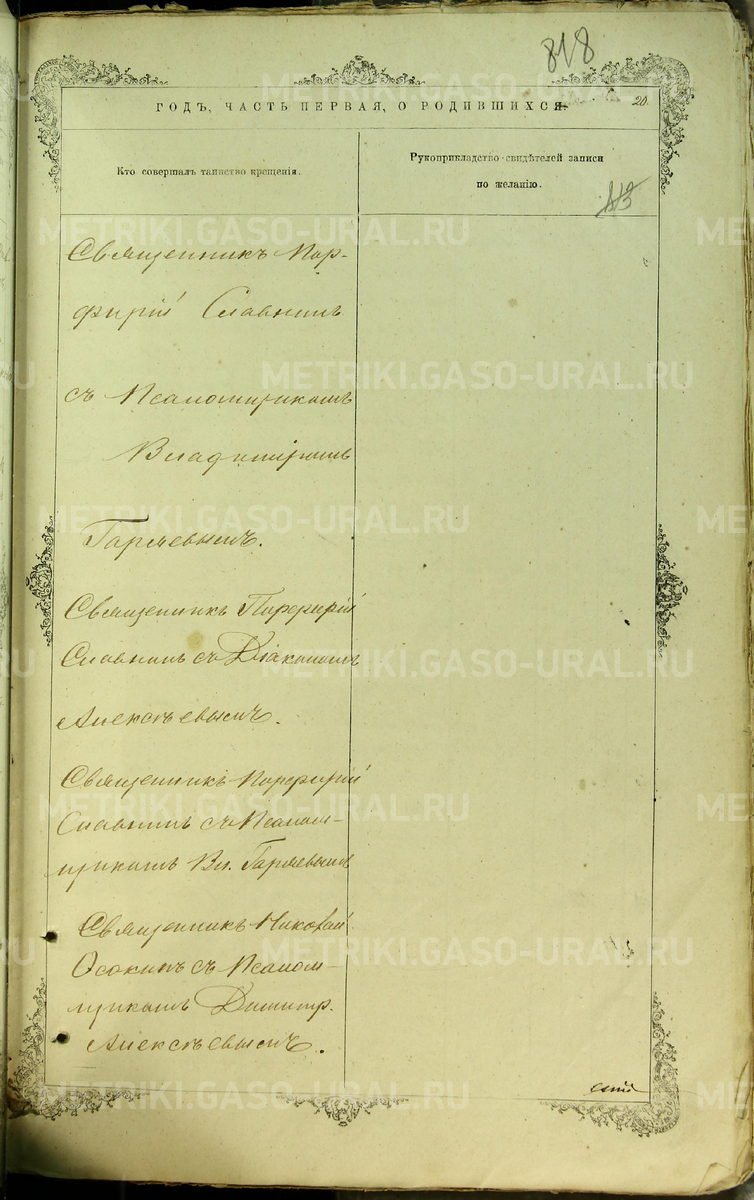 818
ГОДЪ, ЧАСТЬ ПЕРВАЯ, О РОДИВШИХСЯ
20.
Кто совершалъ таинство крещенія.
Рукоприкладство свидѣтелей записи
по желанію.
113
Священникъ Пор-
фирій Славнинъ
съ Псаломщикомъ
Владиміромъ
Гаряевымъ.
Священникъ Порфирій
Славнинъ съ Діакономъ
Алексѣевымъ.
Священникъ Порфирій
Славнинъ съ Псалом-
щикомъ Вл. Гаряевымъ
Священникъ Николай
Осокинъ съ Псалом-
щикомъ Димитр.
Алексѣевымъ.
METRIKI.GASO-URAL.RU